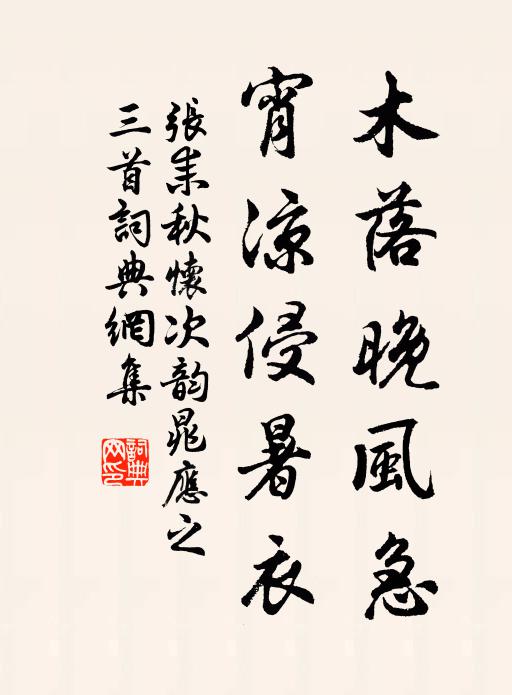 木落晚風急
宵涼侵暑衣
張耒秋懷次韵晁應之
三首詞典網集
詞典
网印